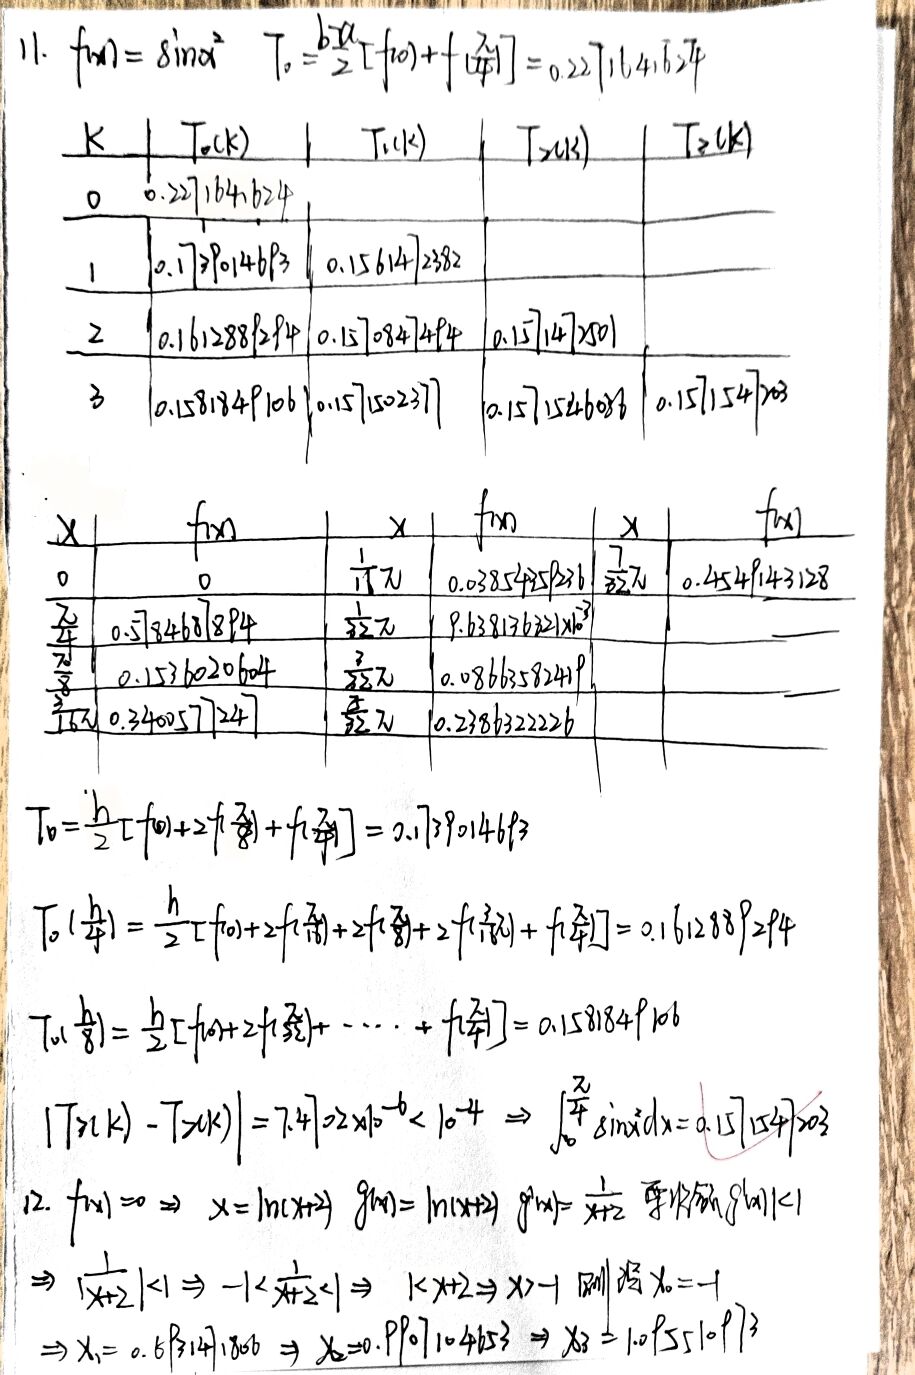 11. f(x) = sinx² T₀ = b-a/2 [f(0) + f(π/4)] = 0.2271641624
K T₀(K) T₁(K) T₂(K) T₃(K)
0 0.2271641624
1 0.1739014693 0.1561472382
2 0.1612889294 0.1570847494 0.1571472501
3 0.1581849106 0.1571502377 0.1571546036 0.1571547203
x f(x) x f(x) x f(x)
0 0 1/16π 0.03854359236 7/32π 0.4549143128
π/4 0.5784687894 1/32π 9.638136321×10⁻³
π/8 0.1536020604 3/32π 0.08663582419
3/16π 0.3400577247 5/32π 0.2386322226
T₀ = h/2 [f(0) + 2f(π/8) + f(π/4)] = 0.1739014693
T₀(h/4) = h/2 [f(0) + 2f(π/16) + 2f(π/8) + 2f(3/16π) + f(π/4)] = 0.1612889294
T₀(h/8) = h/2 [f(0) + 2f(π/32) + ····· + f(π/4)] = 0.1581849106
|T₃(K) - T₂(K)| = 7.4702×10⁻⁶ < 10⁻⁴ ⇒ ∫₀^π/4 sinx²dx = 0.1571547203
12. f(x) = 0 ⇒ x = ln(x+2) g(x) = ln(x+2) g'(x) = 1/x+2 要收敛 |g'(x)| < 1
⇒ |1/x+2| < 1 ⇒ -1 < 1/x+2 < 1 ⇒ 1 < x+2 ⇒ x > -1 则 x₀ = -1
⇒ x₁ = 0.6931471806 ⇒ x₂ = 0.9907104653 ⇒ x₃ = 1.095510973